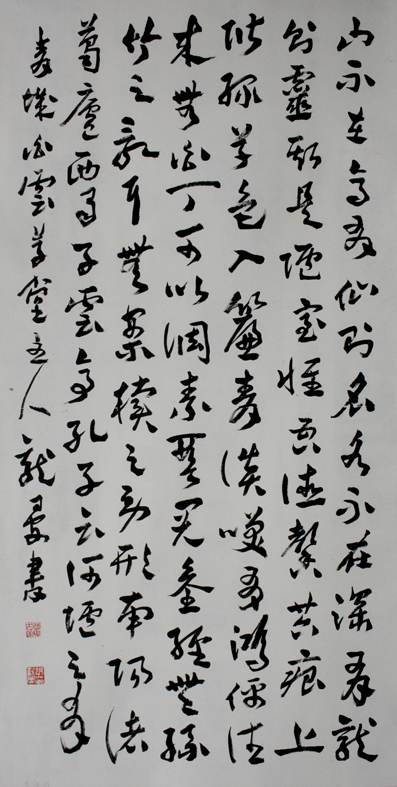 山不在高有仙則名水不在深有龍
則靈斯是陋室惟吾德馨苔痕上
階綠草色入簾青談笑有鴻儒往
來無白丁可以調素琴閱金經無絲
竹之亂耳無案牘之勞形南陽諸
葛廬西蜀子雲亭孔子云何陋之有
青城白雲草堂主人龍書